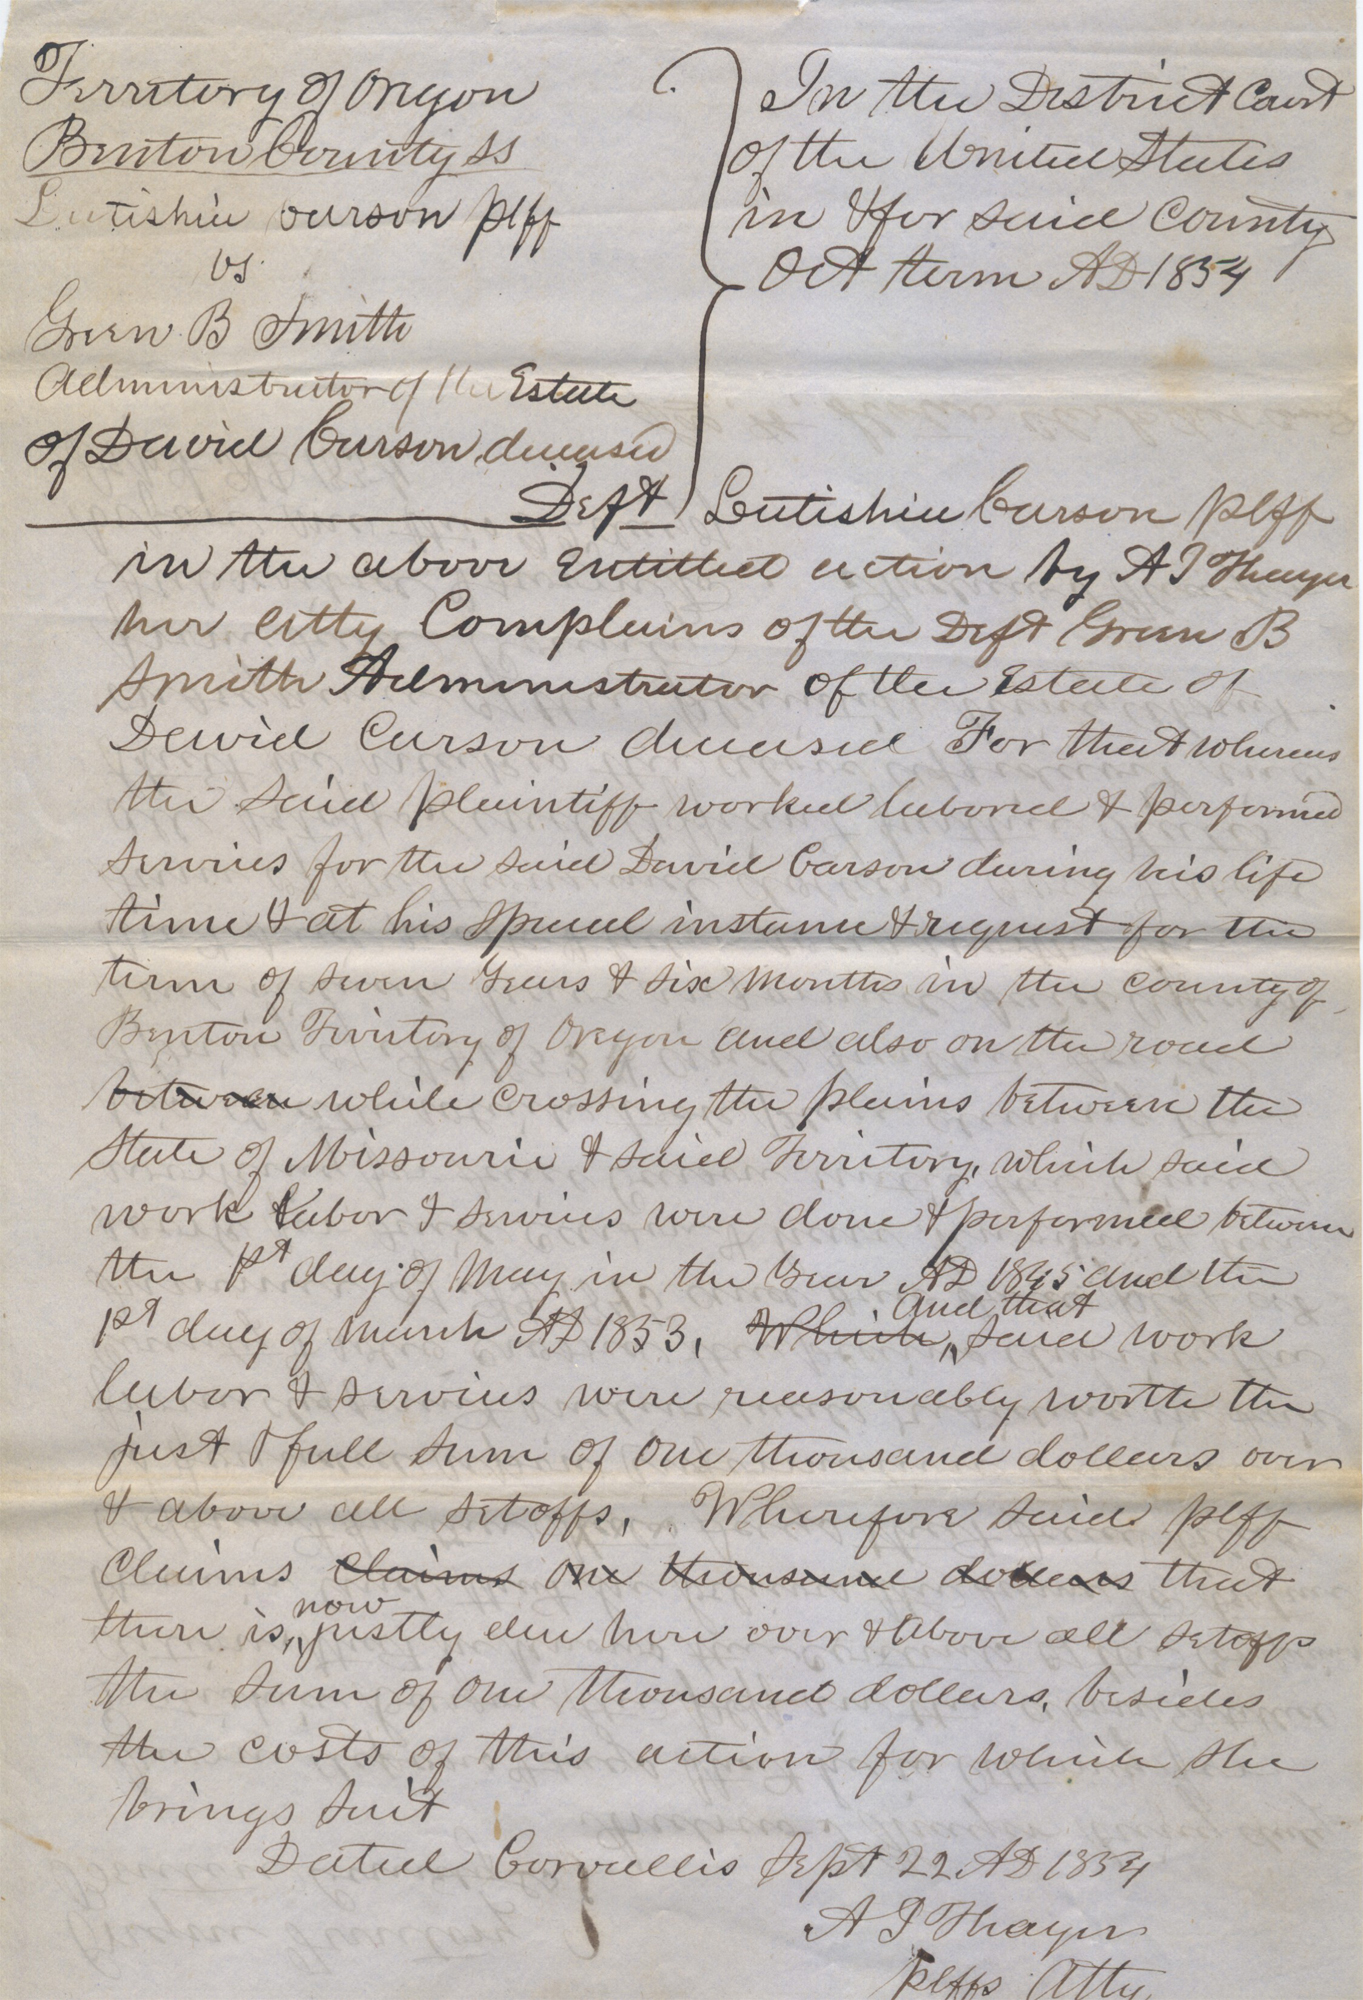 Territory of Oregon
Benton County ss
Lutishia Carson plff
vs
Green B Smith
Administrator of the Estate
of David Carson deceased
Deft
In the District Court
of the United States
in & for said County
Oct term AD 1854
Lutishia Carson plff
in the above Entitled action by A J Thayer
her atty Complains of the Deft Green B
Smith Administrator of the Estate of
David Carson deceased For that whereas
the said plaintiff worked labored & performed
services for the said David Carson during his life
time & at his special instance & request for the
term of seven years & six months in the county of
Benton Territory of Oregon and also on the road
between while crossing the plains between the
State of Missourie & said Territory, which said
work labor & services were done & performed between
the 1st day of May in the year AD 1845 and the
1st day of March AD 1853, Which, and that said work
labor & services were reasonably worth the
just & full sum of one thousand dollars over
& above all setoffs, Wherefore said plff
claims claims one thousand dollars that
there is, now justly due here over & above all setoffs
the sum of one thousand dollars, besides
the costs of this action for which she
brings suit
Dated Corvallis Sept 22 AD 1854
A J Thayer
plffs Atty